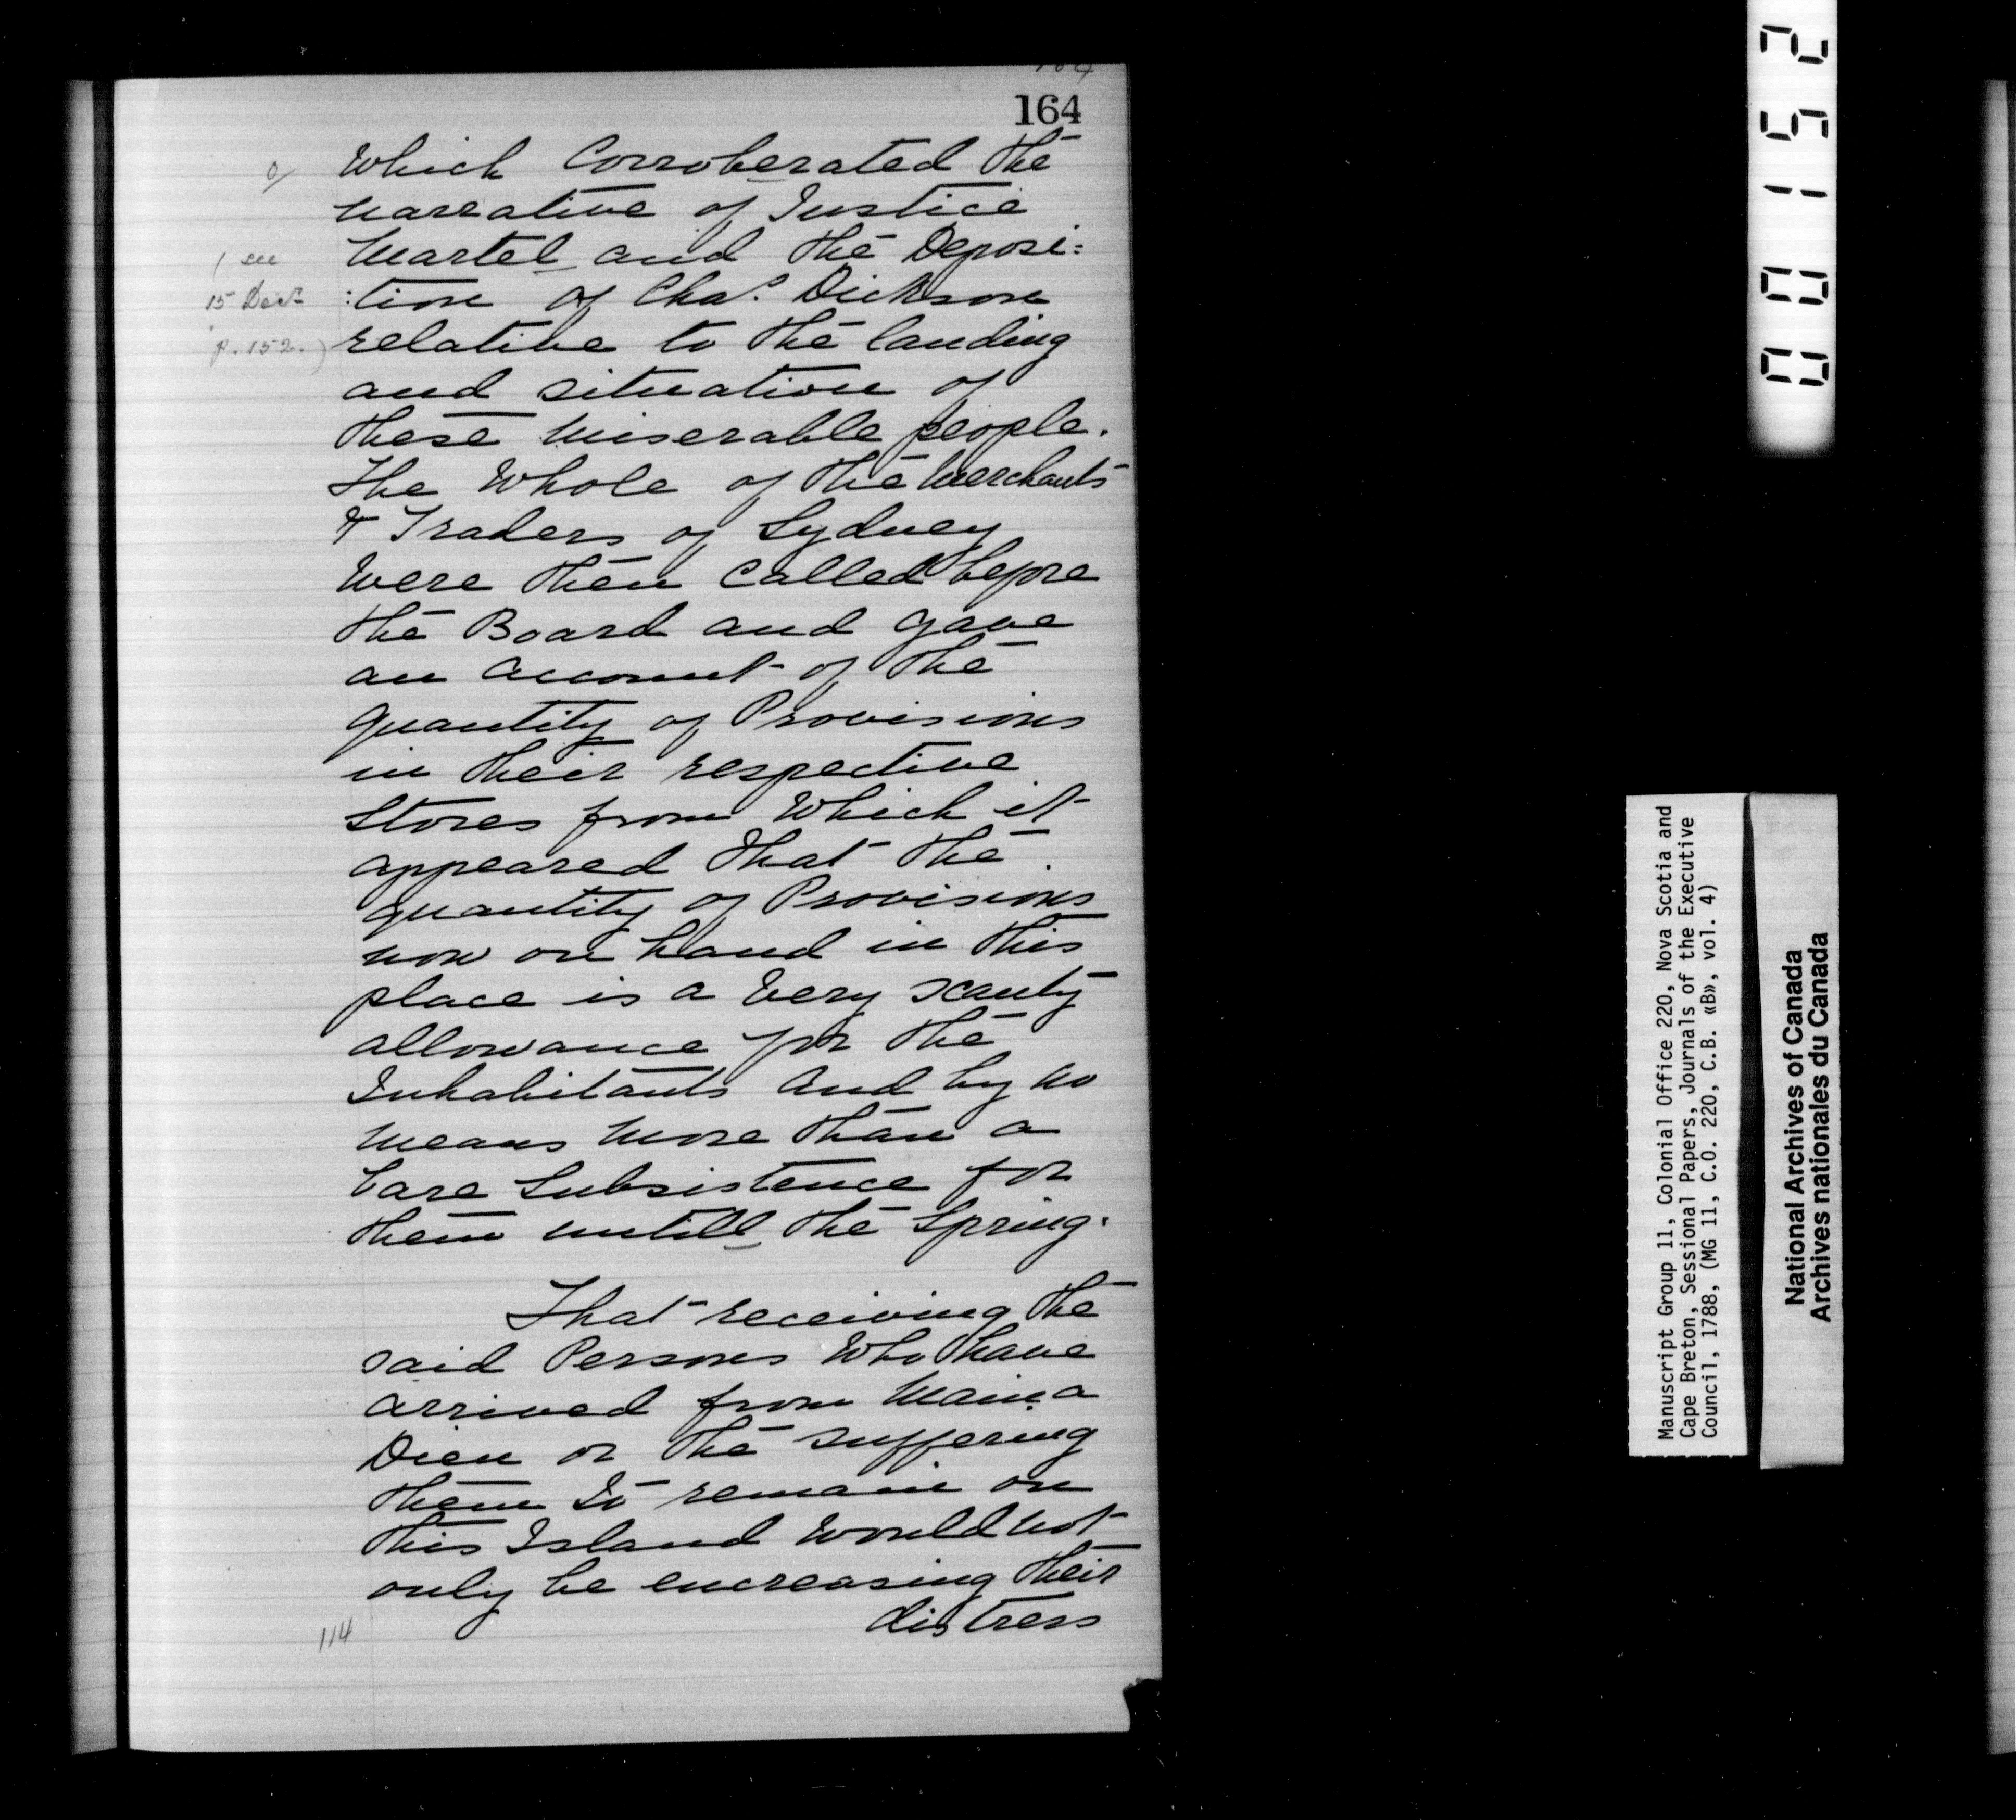 164
o/ Which Corroberated the
narrative of Justice
Martel and the Deposi:
:tion of Chas. Dickson
relative to the landing
and situation of
these miserable people.
The Whole of the Merchants
& Traders of Sydney
Were then Called before
the Board and gave
an account of the
quantity of Provisions
in their respective
Stores from Which it
appeared that the
quantity of Provisions
now on hand in this
place is a Very scanty
allowance for the
Inhabitants and by no
means more than a
bare Subsistence for
them untill the Spring.
That receiving the
said Persons Who have
arrived from Main a
Dieu or the suffering
them to remain on
this Island Would not
only be encreasing their
distress
( see
15 Decr
p. 152.)
114
00152
Manuscript Group 11, Colonial Office 220, Nova Scotia and
Cape Breton, Sessional Papers, Journals of the Executive
Council, 1788, (MG 11, C.O. 220, C.B. «B», vol. 4)
National Archives of Canada
Archives nationales du Canada